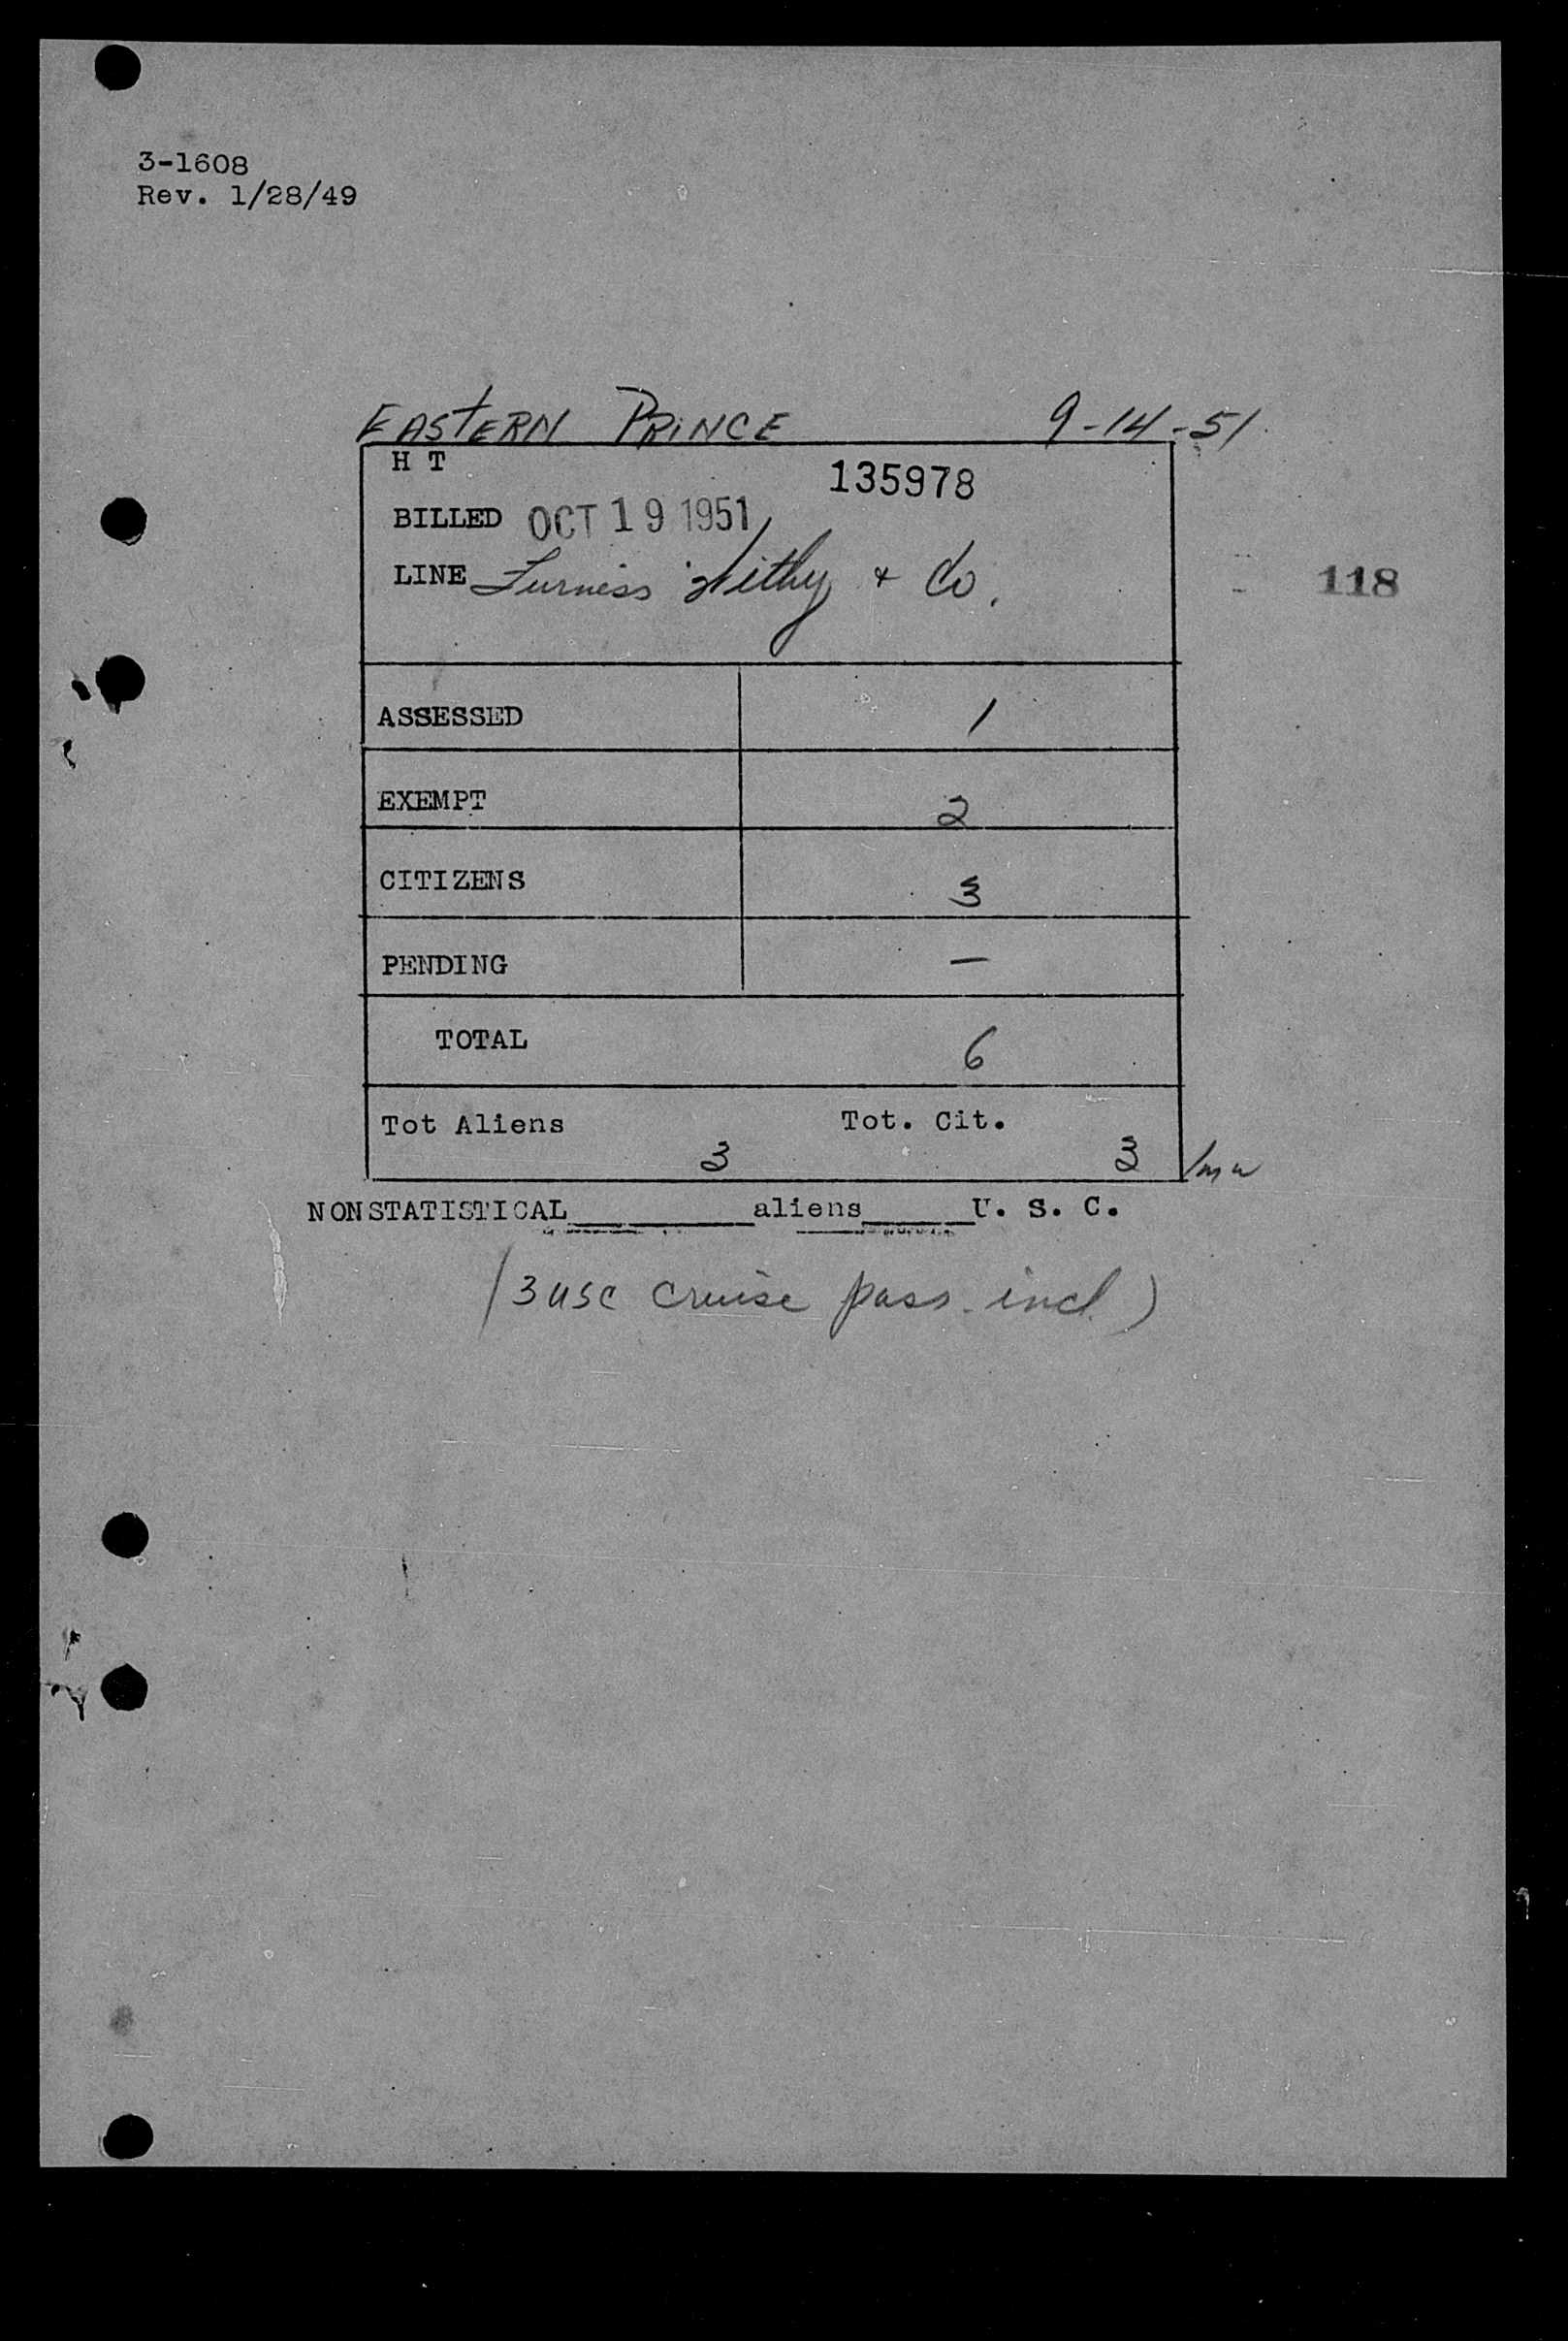 3-1608
Rev. 1/28/49
EASTERN PRINCE 9-14-51
H T 135978
BILLED OCT 19 1951
LINE Furness Withy & Co.
118
ASSESSED 1
EXEMPT 2
CITIZENS 3
PENDING —
TOTAL 6
Tot Aliens 3 Tot. Cit. 3
NONSTATISTICAL________aliens_____U. S. C.
(3 USC cruise pass. incl.)